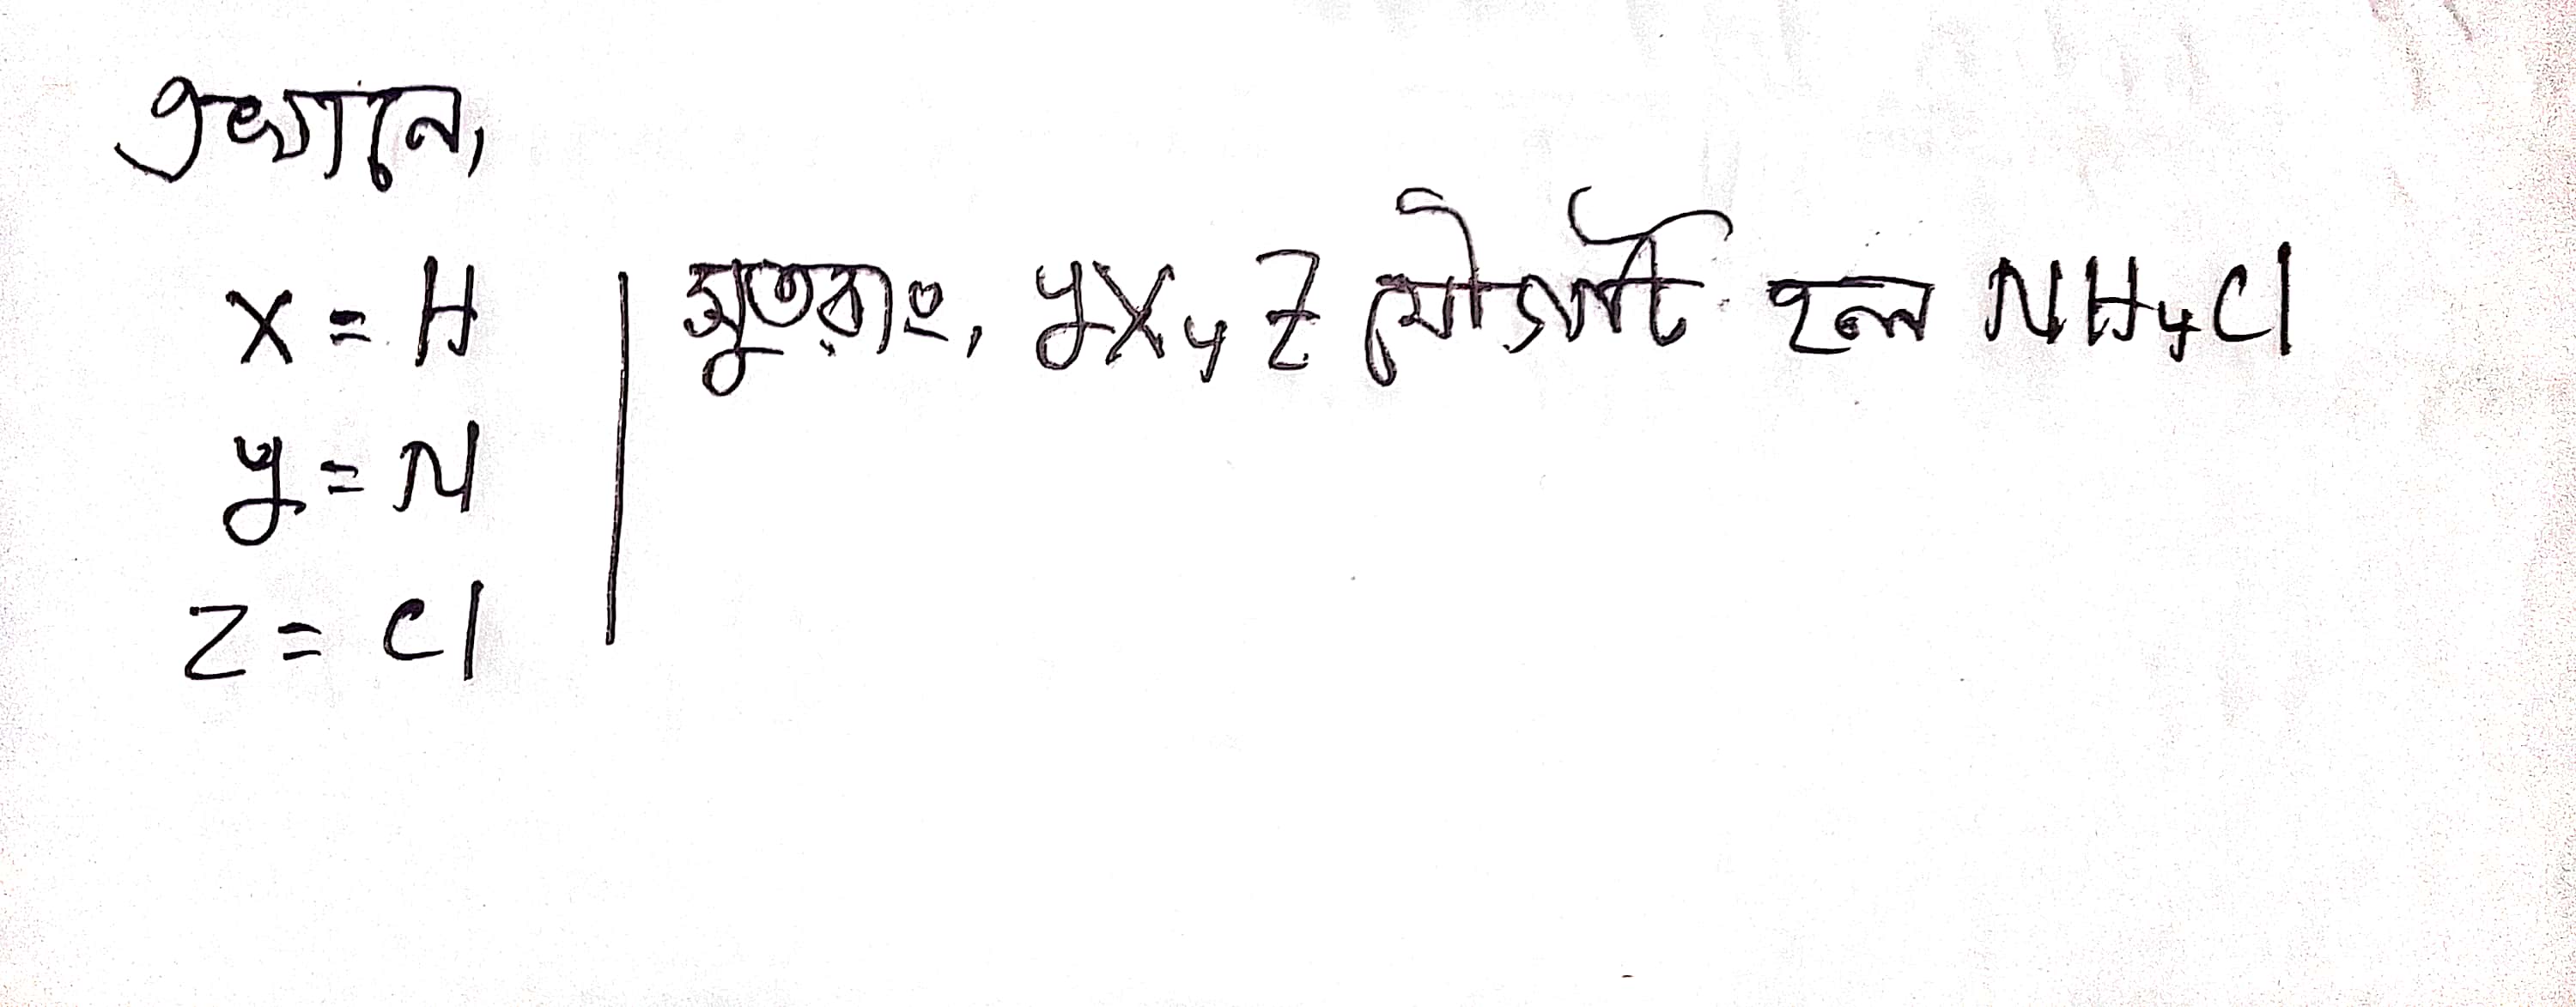 এখানে,
X = H
y = N
Z = Cl
সুতরাং, yX₄Z যৌগটি হল NH₄Cl